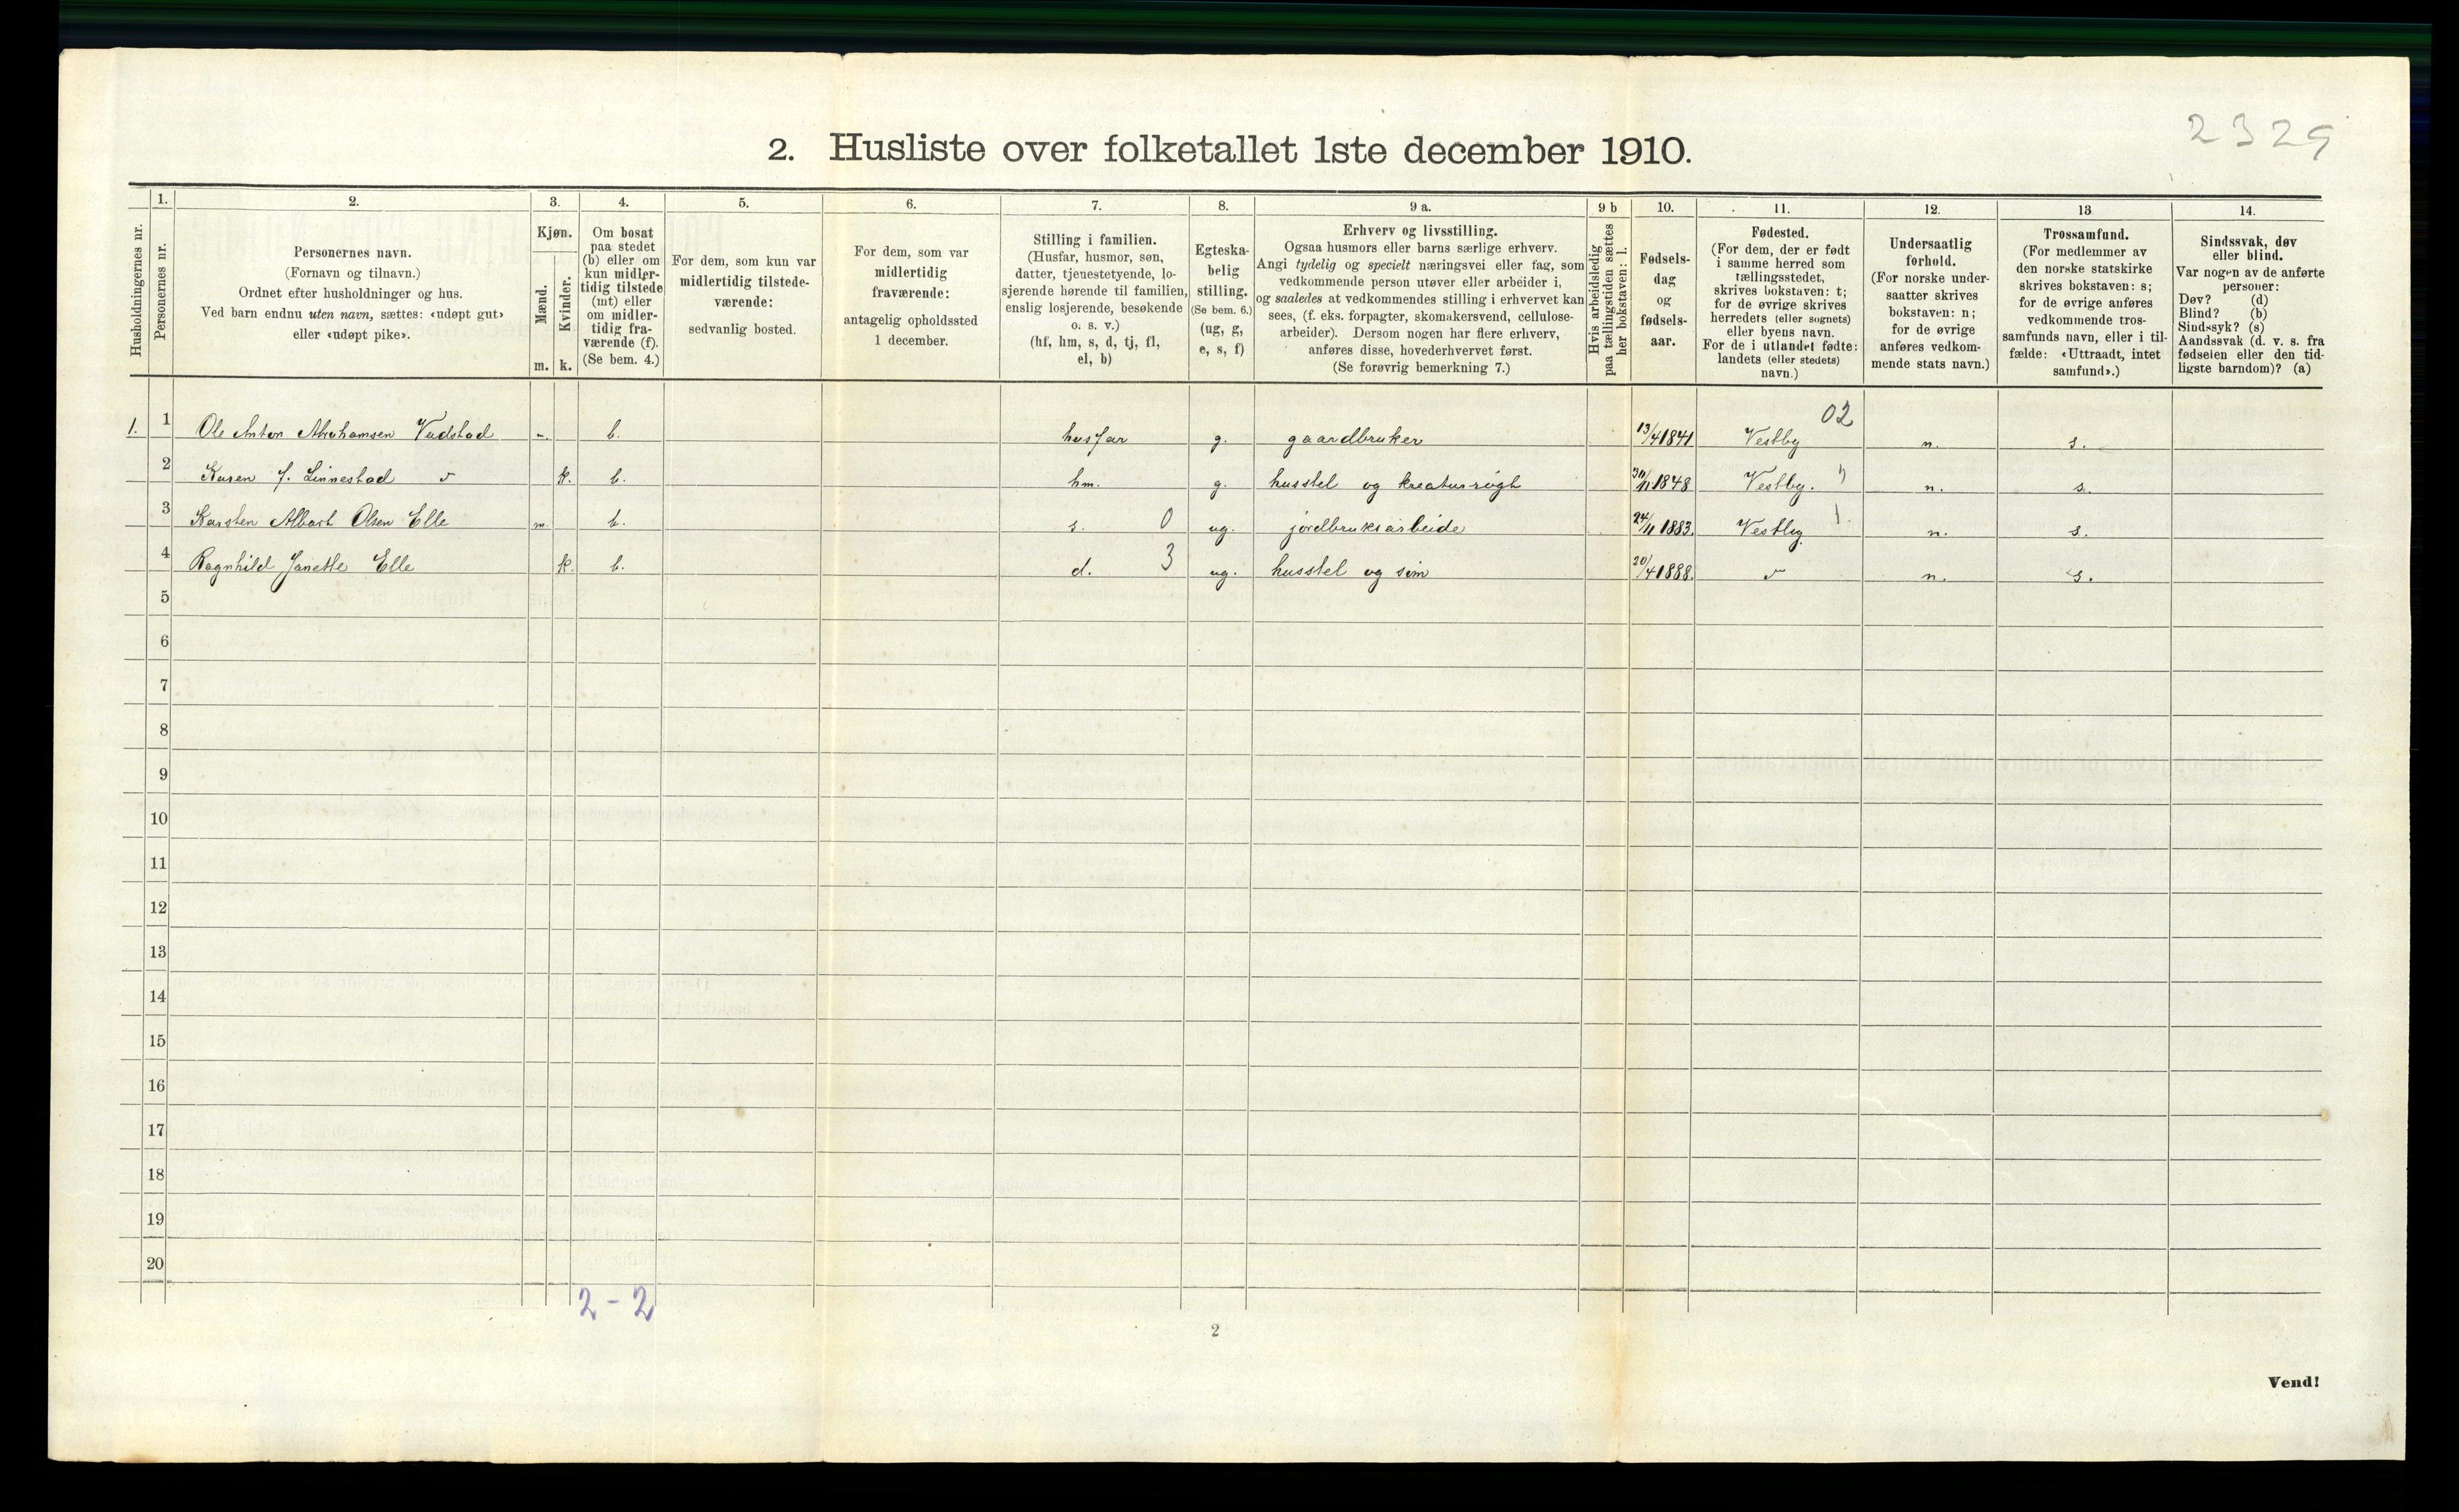 2329
2. Husliste over folketallet 1ste december 1910.
Husholdningernes nr.
1.
Personernes nr.
2.
Personernes navn.
(Fornavn og tilnavn.)
Ordnet efter husholdninger og hus.
Ved barn endnu uten navn, sættes: «udøpt gut»
eller «udøpt pike».
3.
Kjøn.
Mænd.
Kvinder.
m. k.
4.
Om bosat
paa stedet
(b) eller om
kun midler-
tidig tilstede
(mt) eller
om midler-
tidig fra-
værende (f).
(Se bem. 4.)
5.
For dem, som kun var
midlertidig tilstede-
værende:
sedvanlig bosted.
6.
For dem, som var
midlertidig
fraværende:
antagelig opholdssted
1 december.
7.
Stilling i familien.
(Husfar, husmor, søn,
datter, tjenestetyende, lo-
sjerende hørende til familien,
enslig losjerende, besøkende
o. s. v.)
(hf, hm, s, d, tj, fl,
el, b)
8.
Egteska-
belig
stilling.
(Se bem. 6.)
(ug, g,
e, s, f)
9 a.
Erhverv og livsstilling.
Ogsaa husmors eller barns særlige erhverv.
Angi tydelig og specielt næringsvei eller fag, som
vedkommende person utøver eller arbeider i,
og saaledes at vedkommendes stilling i erhvervet kan
sees, (f. eks. forpagter, skomakersvend, cellulose-
arbeider). Dersom nogen har flere erhverv,
anføres disse, hovederhvervet først.
(Se forøvrig bemerkning 7.)
9 b
Hvis arbeidsledig
paa tællingstiden sættes
her bokstaven: l.
10.
Fødsels-
dag
og
fødsels-
aar.
11.
Fødested.
(For dem, der er født
i samme herred som
tællingsstedet,
skrives bokstaven: t;
for de øvrige skrives
herredets (eller sognets)
eller byens navn.
For de i utlandet fødte:
landets (eller stedets)
navn.)
12.
Undersaatlig
forhold.
(For norske under-
saatter skrives
bokstaven: n;
for de øvrige
anføres vedkom-
mende stats navn.)
13
Trossamfund.
(For medlemmer av
den norske statskirke
skrives bokstaven: s;
for de øvrige anføres
vedkommende tros-
samfunds navn, eller i til-
fælde: «Uttraadt, intet
samfund».)
14.
Sindssvak, døv
eller blind.
Var nogen av de anførte
personer:
Døv? (d)
Blind? (b)
Sindssyk? (s)
Aandssvak (d. v. s. fra
fødselen eller den tid-
ligste barndom)? (a)
02
1. 1 Ole Anton Abrahamsen m. b. husfar g. gaardbruker 13/4 1841 Vestby n. s.
2 Karen J. Linnestad k. b. hm. g. husstel og kreaturrøgt 30/11 1848 Vestby. n. s.
3 Karsten Albert Olsen Elle m. b. s. 0 ug. jordbruksarbeide 24/11 1883. Vestby n. s.
4 Ragnhild Janette Elle k. b. d. 3 ug. husstel og søm 20/4 1888. n. s.
5
6
7
8
9
10
11
12
13
14
15
16
17
18
19
20
2-2
2
Vend!